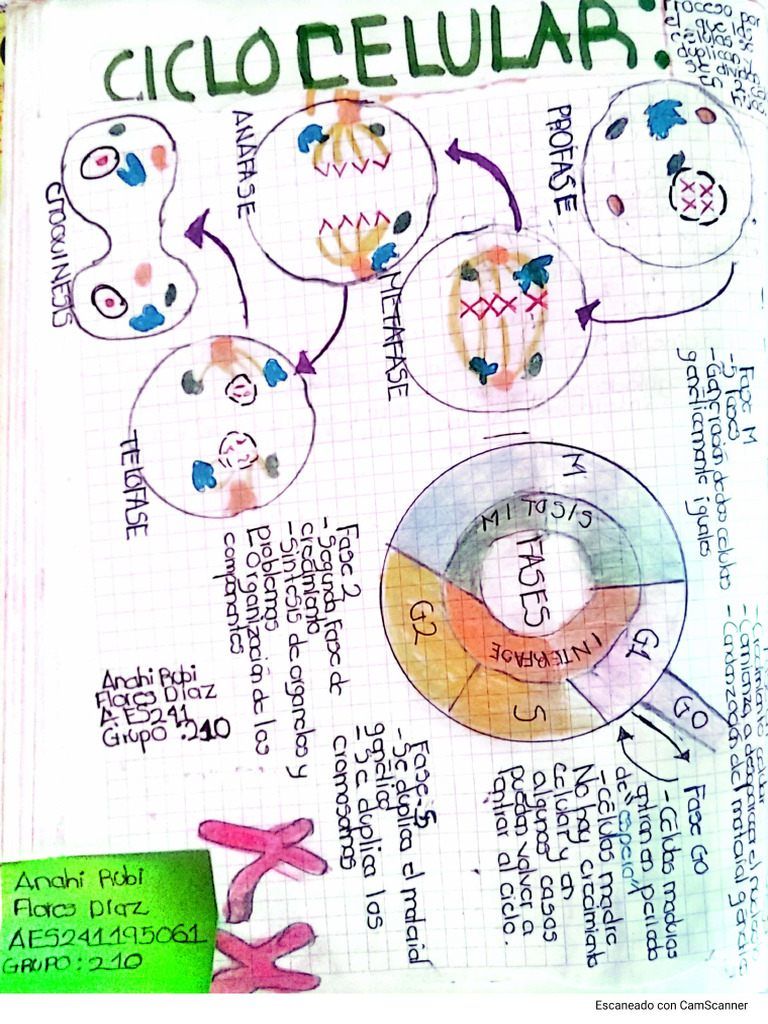 CICLO CELULAR:
Proceso por
el que las
células se
duplican y
se dividen
en 2
hijas
PROFASE
METAFASE
ANAFASE
TELOFASE
CITOQUINESIS
Fase M
-5 fases
-Generación de dos celulas
genéticamente iguales
M
MITOSIS
FASES
INTERFASE
G1
G0
S
G2
-Crecimiento celular
-Comienza a desaparecer el nucleolo
-Condenzación del material genetico
Fase G0
-Células maduras
entran en periodo
de "espera"
-células madre
No hay crecimiento
celular y en
algunos casos
pueden volver a
entrar al ciclo.
Fase 2
-Segunda Fase de
crecimiento
-Sintesis de organelos y
problemas
Eorganización de los
componentes
Fase-S
-Se duplica el material
genético
-Se duplica los
cromosomas
Anahi Rubi
Flores Díaz
AES241
Grupo :210
Anahi Rubi
Flores Díaz
AES241195061
GRUPO:210
Escaneado con CamScanner